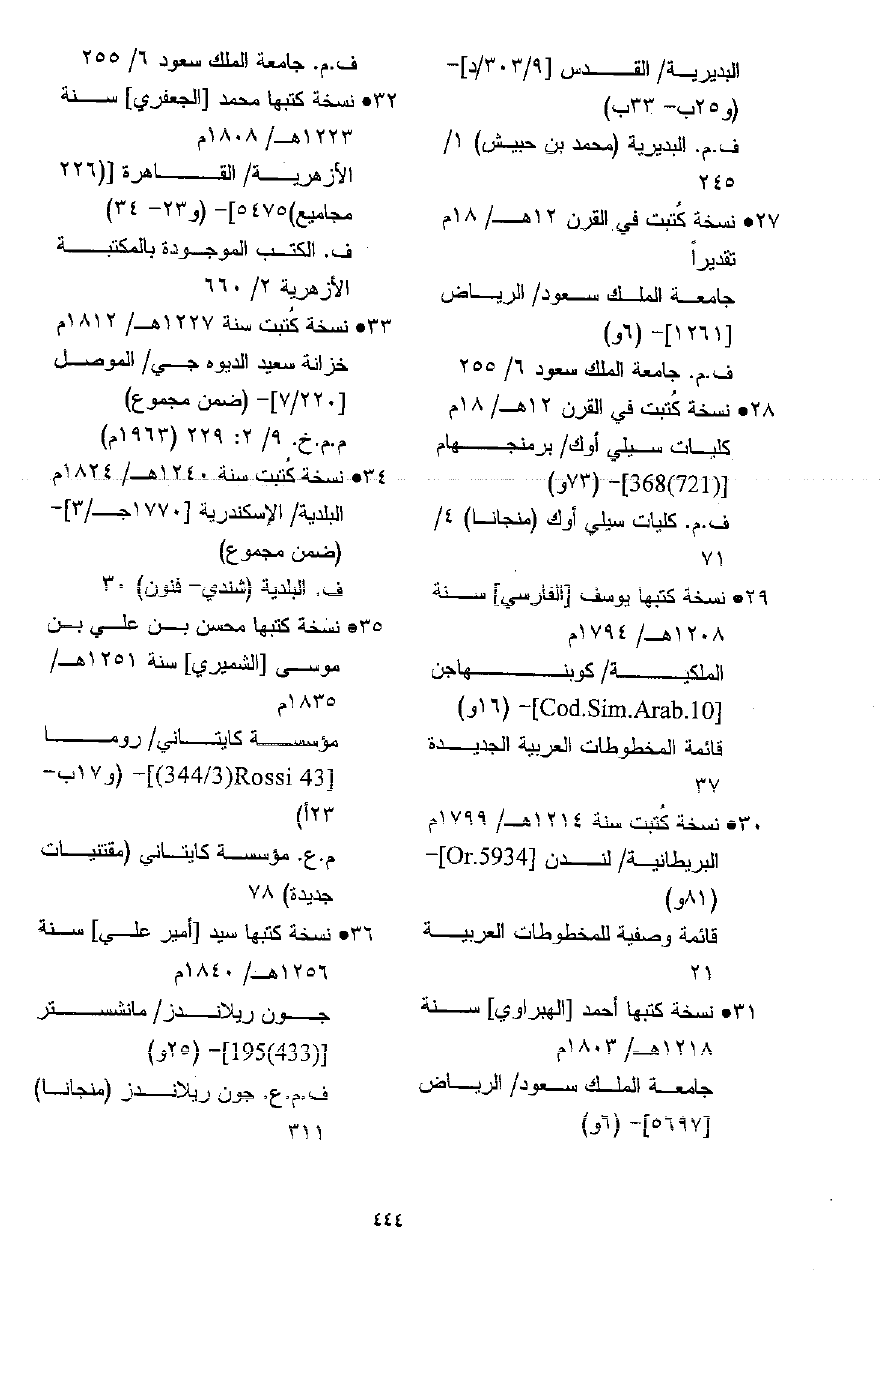 البديرية/ القدس [٣٠٣/٩/د]-
(و٢٥ب- ٣٣ب)
ف.م. البديرية (محمد بن حبيش) ١/
٢٤٥
٢٧• نسخة كُتبت في القرن ١٢هـ/ ١٨م
تقديراً
جامعة الملك سعود/ الرياض
[١٢٦١]- (٦و)
ف.م. جامعة الملك سعود ٦/ ٢٥٥
٢٨• نسخة كُتبت في القرن ١٢هـ/ ١٨م
كليات سيلي أوك/ برمنجهام
[368(721)]- (٧٣و)
ف.م. كليات سيلي أوك (منجانا) ٤/
٧١
٢٩• نسخة كتبها يوسف [الفارسي] سنة
١٢٠٨هـ/ ١٧٩٤م
الملكية/ كوبنهاجن
[Cod.Sim.Arab.10]- (١٦و)
قائمة المخطوطات العربية الجديدة
٣٧
٣٠• نسخة كُتبت سنة ١٢١٤هـ/ ١٧٩٩م
البريطانية/ لندن [Or.5934]-
(٨١و)
قائمة وصفية للمخطوطات العربية
٢١
٣١• نسخة كتبها أحمد [الهبراوي] سنة
١٢١٨هـ/ ١٨٠٣م
جامعة الملك سعود/ الرياض
[٥٦٩٧]- (٦و)
ف.م. جامعة الملك سعود ٦/ ٢٥٥
٣٢• نسخة كتبها محمد [الجعفري] سنة
١٢٢٣هـ/ ١٨٠٨م
الأزهرية/ القاهرة [(٢٢٦
مجاميع)٥٤٧٥]- (و٢٣- ٣٤)
ف. الكتب الموجودة بالمكتبة
الأزهرية ٢/ ٦٦٠
٣٣• نسخة كُتبت سنة ١٢٢٧هـ/ ١٨١٢م
خزانة سعيد الديوه جي/ الموصل
[٧/٢٢٠]- (ضمن مجموع)
م.م.خ. ٩/ ٢: ٢٢٩ (١٩٦٣م)
٣٤• نسخة كُتبت سنة ١٢٤٠هـ/ ١٨٢٤م
البلدية/ الإسكندرية [١٧٧٠جـ/٣]-
(ضمن مجموع)
ف. البلدية (شندي- فنون) ٣٠
٣٥• نسخة كتبها محسن بن علي بن
موسى [الشميري] سنة ١٢٥١هـ/
١٨٣٥م
مؤسسة كايتاني/ روما
[344/3)Rossi 43)]- (و١٧ب-
٢٣أ)
م.ع. مؤسسة كايتاني (مقتنيات
جديدة) ٧٨
٣٦• نسخة كتبها سيد [أمير علي] سنة
١٢٥٦هـ/ ١٨٤٠م
جون ريلاندز/ مانشستر
[195(433)]- (٢٥و)
ف.م.ع. جون ريلاندز (منجانا)
٣١١
٤٤٤